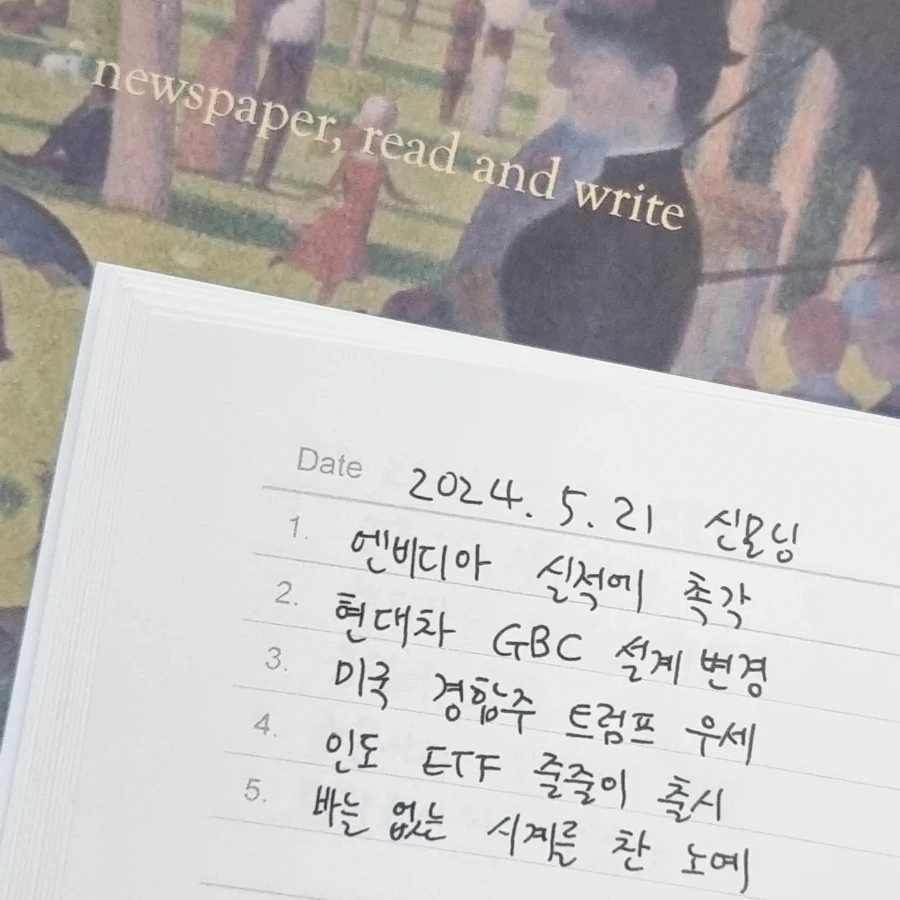 newspaper, read and write
Date 2024. 5. 21 신모닝
1. 엔비디아 실적에 촉각
2. 현대차 GBC 설계 변경
3. 미국 경합주 트럼프 우세
4. 인도 ETF 줄줄이 출시
5. 바늘 없는 시계를 찬 노예